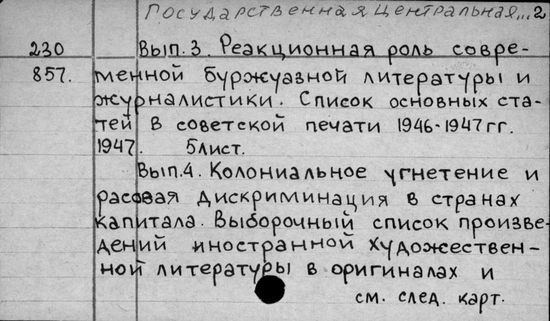 Государственная Центральная... 2
230 Вып. 3. Реакционная роль совре-
857. менной буржуазной литературы и
журналистики. Список основных ста-
тей в советской печати 1946-1947гг.
1947. 5 лист.
Вып. 4. Колониальное угнетение и
расовая дискриминация в странах
капитала. Выборочный список произве-
дений иностранной художествен-
ной литературы в оригиналах и
см. след. карт.